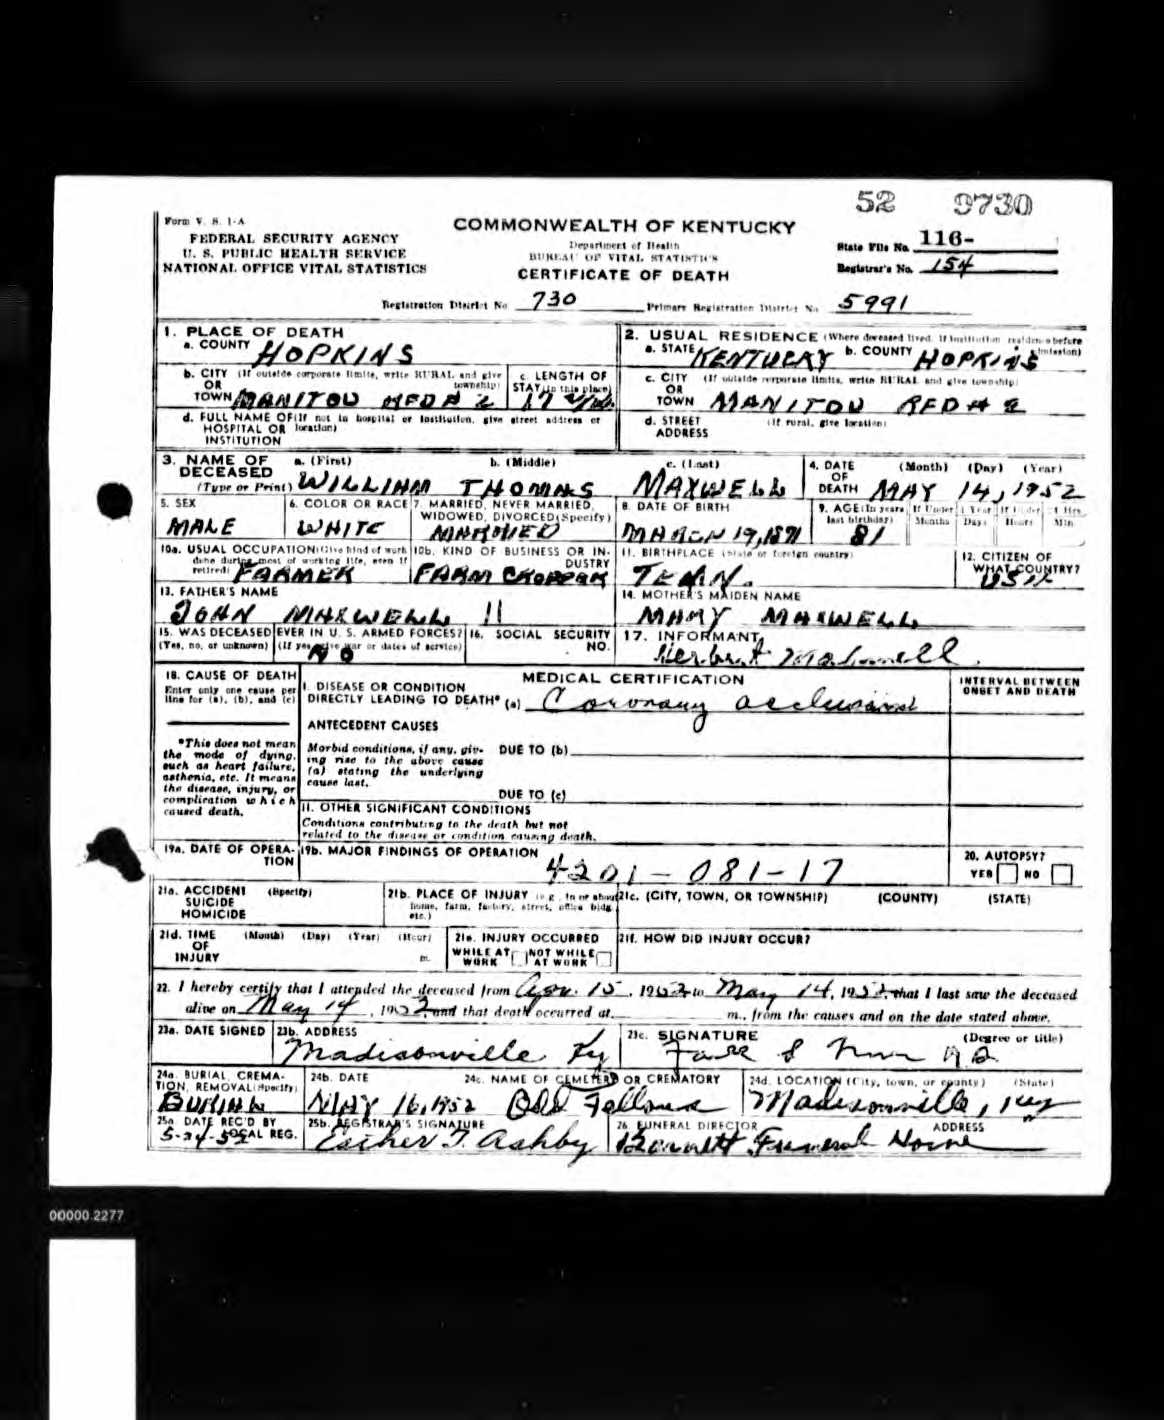 52 9730
Form V. S. 1-A
FEDERAL SECURITY AGENCY
U. S. PUBLIC HEALTH SERVICE
NATIONAL OFFICE VITAL STATISTICS
COMMONWEALTH OF KENTUCKY
Department of Health
BUREAU OF VITAL STATISTICS
CERTIFICATE OF DEATH
State File No. 116-
Registrar's No. 154
Registration District No. 730 Primary Registration District No. 5991
1. PLACE OF DEATH
a. COUNTY HOPKINS
2. USUAL RESIDENCE (Where deceased lived. If institution residence before admission)
a. STATE KENTUCKY b. COUNTY HOPKINS
b. CITY (If outside corporate limits, write RURAL and give township)
OR
TOWN MANITOU RFD # 2
c. LENGTH OF
STAY (in this place)
17
c. CITY (If outside corporate limits, write RURAL and give township)
OR
TOWN MANITOU RFD # 2
d. FULL NAME OF (If not in hospital or institution, give street address or location)
HOSPITAL OR
INSTITUTION
d. STREET (If rural, give location)
ADDRESS
3. NAME OF DECEASED
(Type or Print)
a. (First) b. (Middle) c. (Last)
WILLIAM THOMAS MAXWELL
4. DATE OF DEATH (Month) (Day) (Year)
MAY 14, 1952
5. SEX
MALE
6. COLOR OR RACE
WHITE
7. MARRIED, NEVER MARRIED,
WIDOWED, DIVORCED (Specify)
MARRIED
8. DATE OF BIRTH
MARCH 19, 1871
9. AGE (In years last birthday) If Under 1 Year Months Days If Under 24 Hrs Hours Min
81
10a. USUAL OCCUPATION (Give kind of work done during most of working life, even if retired)
FARMER
10b. KIND OF BUSINESS OR INDUSTRY
FARM CROPPER
11. BIRTHPLACE (State or foreign country)
TENN.
12. CITIZEN OF
WHAT COUNTRY?
USA
13. FATHER'S NAME
JOHN MAXWELL
14. MOTHER'S MAIDEN NAME
MARY MAXWELL
15. WAS DECEASED EVER IN U. S. ARMED FORCES?
(Yes, no, or unknown) (If yes give war or dates of service)
NO
16. SOCIAL SECURITY
NO.
17. INFORMANT
Herbert Maxwell
18. CAUSE OF DEATH
Enter only one cause per
line for (a), (b), and (c)
MEDICAL CERTIFICATION
INTERVAL BETWEEN
ONSET AND DEATH
I. DISEASE OR CONDITION
DIRECTLY LEADING TO DEATH* (a) Coronary occlusion
ANTECEDENT CAUSES
*This does not mean
the mode of dying,
such as heart failure,
asthenia, etc. It means
the disease, injury, or
complication which
caused death.
Morbid conditions, if any, giv-
ing rise to the above cause
(a) stating the underlying
cause last.
DUE TO (b)
DUE TO (c)
II. OTHER SIGNIFICANT CONDITIONS
Conditions contributing to the death but not
related to the disease or condition causing death.
19a. DATE OF OPERA-
TION
19b. MAJOR FINDINGS OF OPERATION
4201 - 081 - 17
20. AUTOPSY?
YES NO
21a. ACCIDENT (Specify)
SUICIDE
HOMICIDE
21b. PLACE OF INJURY (e.g., in or about
home, farm, factory, street, office bldg.,
etc.)
21c. (CITY, TOWN, OR TOWNSHIP) (COUNTY) (STATE)
21d. TIME (Month) (Day) (Year) (Hour)
OF
INJURY m.
21e. INJURY OCCURRED
WHILE AT WORK NOT WHILE AT WORK
21f. HOW DID INJURY OCCUR?
22. I hereby certify that I attended the deceased from Apr. 15, 1952 to May 14, 1952, that I last saw the deceased
alive on May 14, 1952 and that death occurred at m., from the causes and on the date stated above.
23a. DATE SIGNED
23b. ADDRESS
Madisonville Ky
23c. SIGNATURE (Degree or title)
24a. BURIAL, CREMA-
TION, REMOVAL (Specify)
BURIAL
24b. DATE
MAY 16, 1952
24c. NAME OF CEMETERY OR CREMATORY
Odd Fellows
24d. LOCATION (City, town, or county) (State)
Madisonville, Ky
25a. DATE REC'D BY
LOCAL REG.
5-24-52
25b. REGISTRAR'S SIGNATURE
Esther T. Ashby
26. FUNERAL DIRECTOR ADDRESS
Barnett Funeral Home
00000.2277